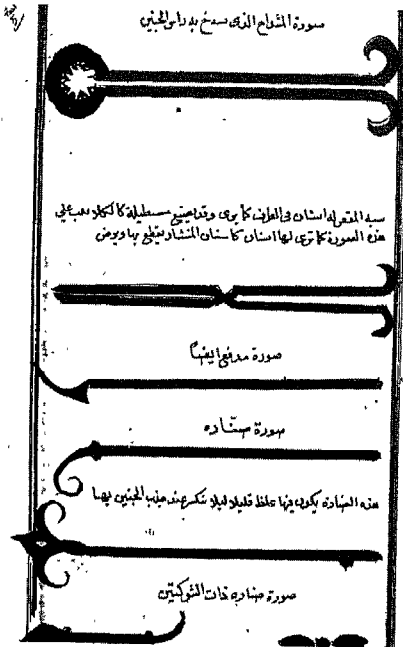 صورة المشداخ الذى يشدخ به راس الجنين
يشبه المقص له اسنان فى الطرف كما ترى وقد يصنع مستطيلة كالكلاليب على
هذه الصورة كما ترى لها اسنان كاسنان المنشار يقطع بها ويرض
صورة مدفع ايضا
صورة صنّاره
هذه الصناره يكون فيها غلظ قليلا ليلا تنكسر عند جذب الجنين بها
صورة صناره ذات الشوكتين